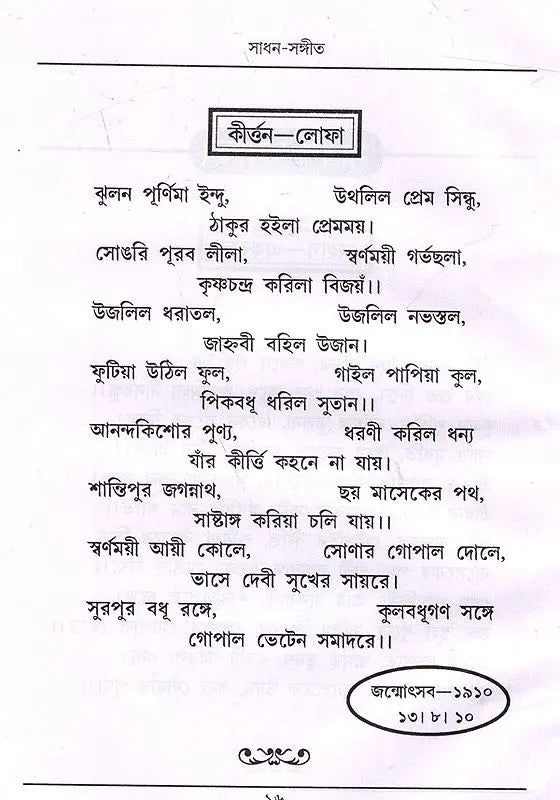 সাধন-সঙ্গীত
কীর্ত্তন—লোফা
ঝুলন পূর্ণিমা ইন্দু, উথলিল প্রেম সিন্ধু,
ঠাকুর হইলা প্রেমময়।
সোঙরি পূরব লীলা, স্বর্ণময়ী গর্ভছলা,
কৃষ্ণচন্দ্র করিলা বিজয়ঁ।।
উজলিল ধরাতল, উজলিল নভস্তল,
জাহ্নবী বহিল উজান।
ফুটিয়া উঠিল ফুল, গাইল পাপিয়া কুল,
পিকবধূ ধরিল সুতান।।
আনন্দকিশোর পুণ্য, ধরণী করিল ধন্য
যাঁর কীর্ত্তি কহনে না যায়।
শান্তিপুর জগন্নাথ, ছয় মাসেকের পথ,
সাষ্টাঙ্গ করিয়া চলি যায়।।
স্বর্ণময়ী আয়ী কোলে, সোণার গোপাল দোলে,
ভাসে দেবী সুখের সায়রে।
সুরপুর বধূ রঙ্গে, কুলবধূগণ সঙ্গে
গোপাল ভেটেন সমাদরে।।
জন্মোৎসব—১৯১০
১৩। ৮। ১০